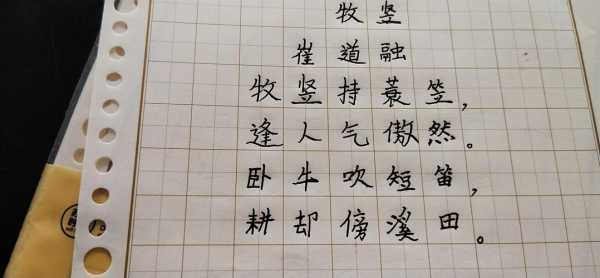 牧竖
崔道融
牧竖持蓑笠,
逢人气傲然。
卧牛吹短笛,
耕却傍溪田。